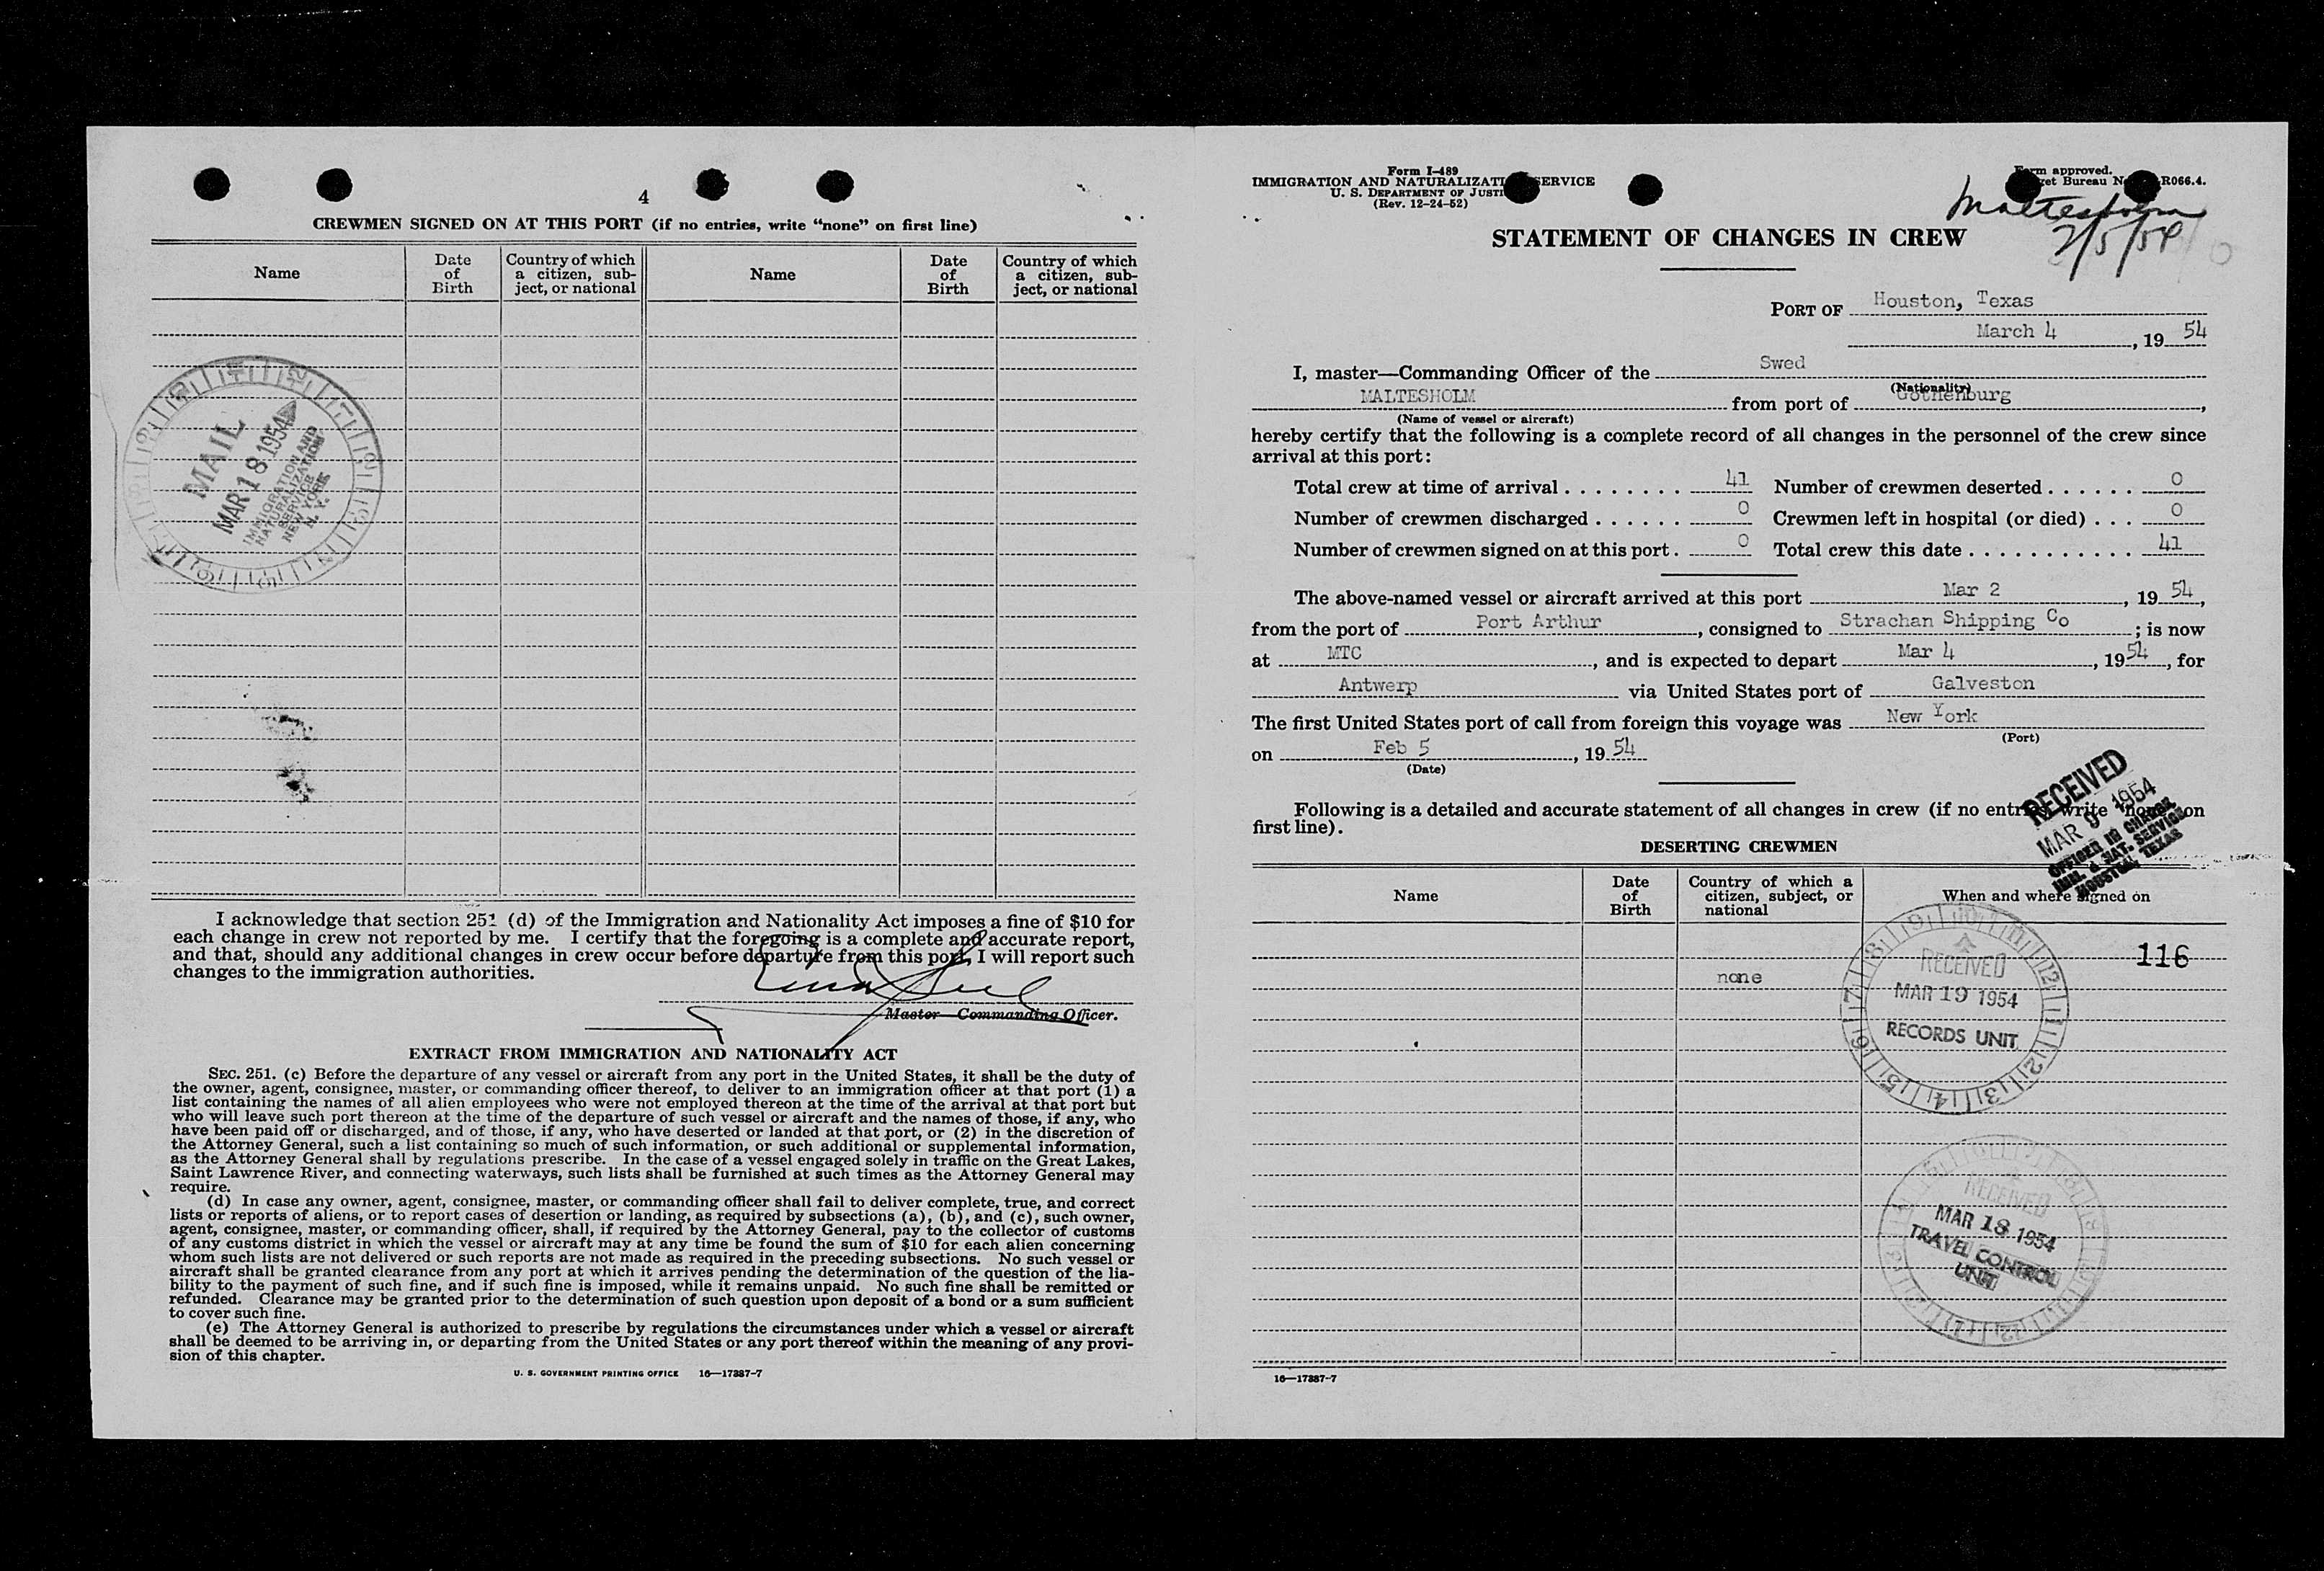 4
CREWMEN SIGNED ON AT THIS PORT (if no entries, write “none” on first line)
Name
Date of Birth
Country of which a citizen, subject, or national
Name
Date of Birth
Country of which a citizen, subject, or national
MAIL
MAR 18 1954
IMMIGRATION AND
NATURALIZATION
SERVICE
NEW YORK
N. Y.
I acknowledge that section 251 (d) of the Immigration and Nationality Act imposes a fine of $10 for
each change in crew not reported by me. I certify that the foregoing is a complete and accurate report,
and that, should any additional changes in crew occur before departure from this port, I will report such
changes to the immigration authorities.
Master—Commanding Officer.
EXTRACT FROM IMMIGRATION AND NATIONALITY ACT
SEC. 251. (c) Before the departure of any vessel or aircraft from any port in the United States, it shall be the duty of
the owner, agent, consignee, master, or commanding officer thereof, to deliver to an immigration officer at that port (1) a
list containing the names of all alien employees who were not employed thereon at the time of the arrival at that port but
who will leave such port thereon at the time of the departure of such vessel or aircraft and the names of those, if any, who
have been paid off or discharged, and of those, if any, who have deserted or landed at that port, or (2) in the discretion of
the Attorney General, such a list containing so much of such information, or such additional or supplemental information,
as the Attorney General shall by regulations prescribe. In the case of a vessel engaged solely in traffic on the Great Lakes,
Saint Lawrence River, and connecting waterways, such lists shall be furnished at such times as the Attorney General may
require.
(d) In case any owner, agent, consignee, master, or commanding officer shall fail to deliver complete, true, and correct
lists or reports of aliens, or to report cases of desertion or landing, as required by subsections (a), (b), and (c), such owner,
agent, consignee, master, or commanding officer, shall, if required by the Attorney General, pay to the collector of customs
of any customs district in which the vessel or aircraft may at any time be found the sum of $10 for each alien concerning
whom such lists are not delivered or such reports are not made as required in the preceding subsections. No such vessel or
aircraft shall be granted clearance from any port at which it arrives pending the determination of the question of the lia-
bility to the payment of such fine, and if such fine is imposed, while it remains unpaid. No such fine shall be remitted or
refunded. Clearance may be granted prior to the determination of such question upon deposit of a bond or a sum sufficient
to cover such fine.
(e) The Attorney General is authorized to prescribe by regulations the circumstances under which a vessel or aircraft
shall be deemed to be arriving in, or departing from the United States or any port thereof within the meaning of any provi-
sion of this chapter.
U. S. GOVERNMENT PRINTING OFFICE 16—17387-7
Form I-489
IMMIGRATION AND NATURALIZATI SERVICE
U. S. DEPARTMENT OF JUSTI
(Rev. 12-24-52)
approved.
et Bureau N R066.4.
Maltesholm
2/5/54
STATEMENT OF CHANGES IN CREW
PORT OF Houston, Texas
March 4, 19 54
I, master—Commanding Officer of the Swed
(Nationality)
MALTESHOLM from port of Gothenburg,
(Name of vessel or aircraft)
hereby certify that the following is a complete record of all changes in the personnel of the crew since
arrival at this port:
Total crew at time of arrival 41 Number of crewmen deserted 0
Number of crewmen discharged 0 Crewmen left in hospital (or died) 0
Number of crewmen signed on at this port 0 Total crew this date 41
The above-named vessel or aircraft arrived at this port Mar 2, 19 54,
from the port of Port Arthur, consigned to Strachan Shipping Co; is now
at MTC, and is expected to depart Mar 4, 19 54, for
Antwerp via United States port of Galveston
The first United States port of call from foreign this voyage was New York
(Port)
on Feb 5, 19 54
(Date)
Following is a detailed and accurate statement of all changes in crew (if no entries, write “none” on
first line).
RECEIVED
MAR 9 1954
OFFICER IN CHARGE
IMM. & NAT. SERVICE
HOUSTON, TEXAS
DESERTING CREWMEN
Name
Date of Birth
Country of which a citizen, subject, or national
When and where signed on
116
none
RECEIVED
MAR 19 1954
RECORDS UNIT
RECEIVED
MAR 18 1954
TRAVEL CONTROL
UNIT
16—17387-7